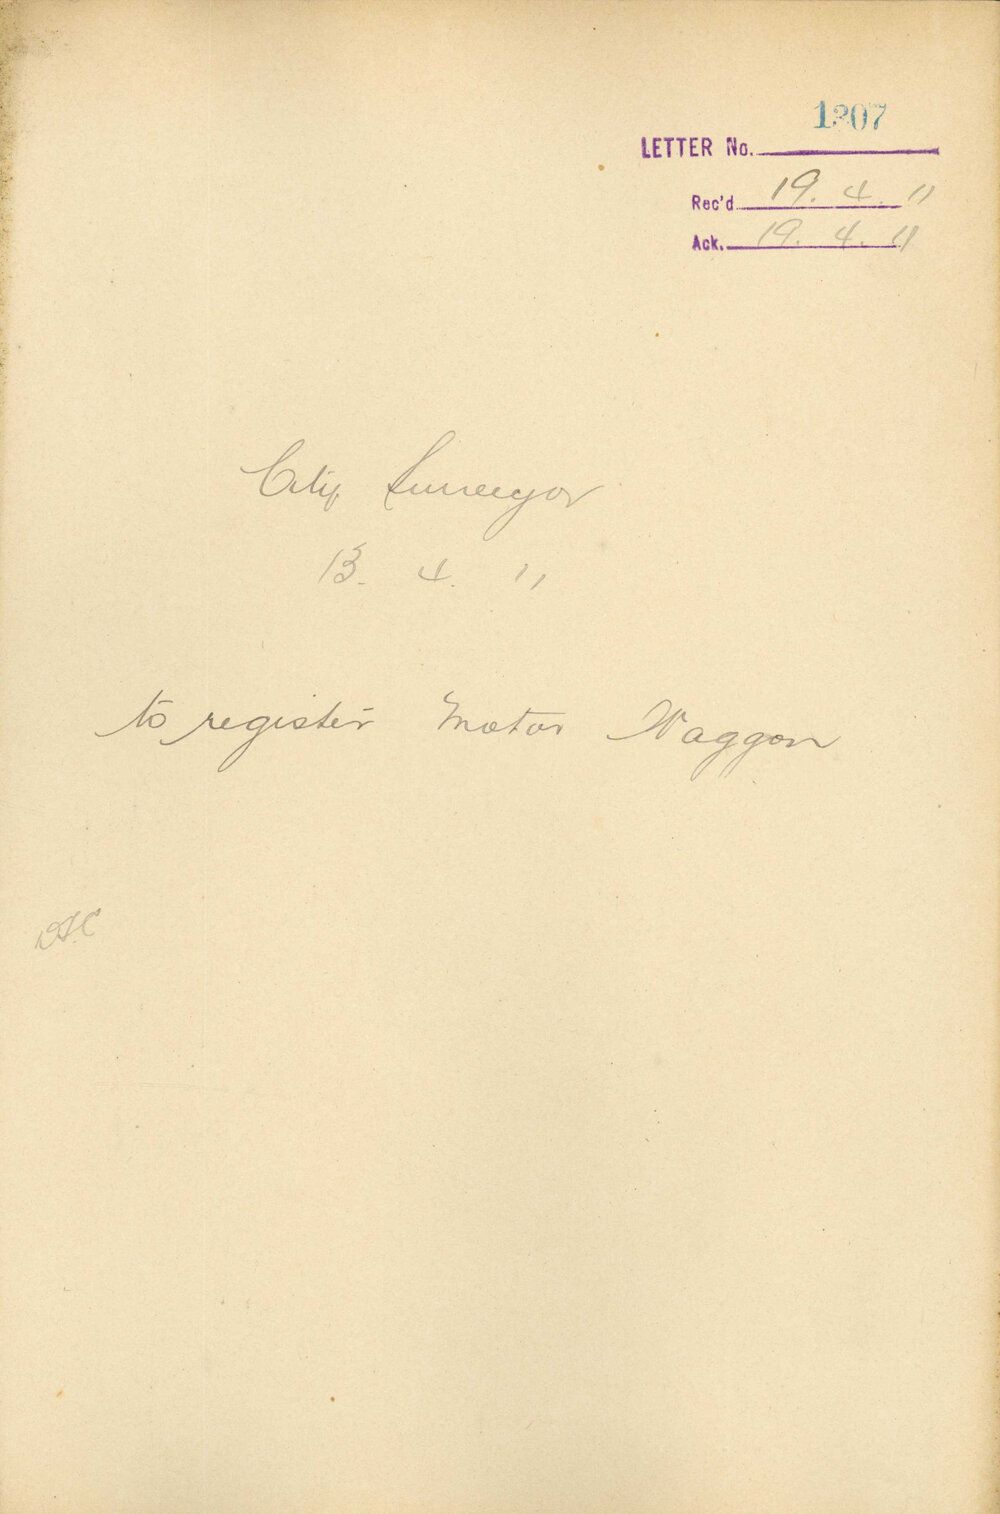 1207
LETTER No.
Rec'd 19. 4. 11
Ack. 19. 4. 11
City Surveyor
13. 4. 11
to register Motor Waggon